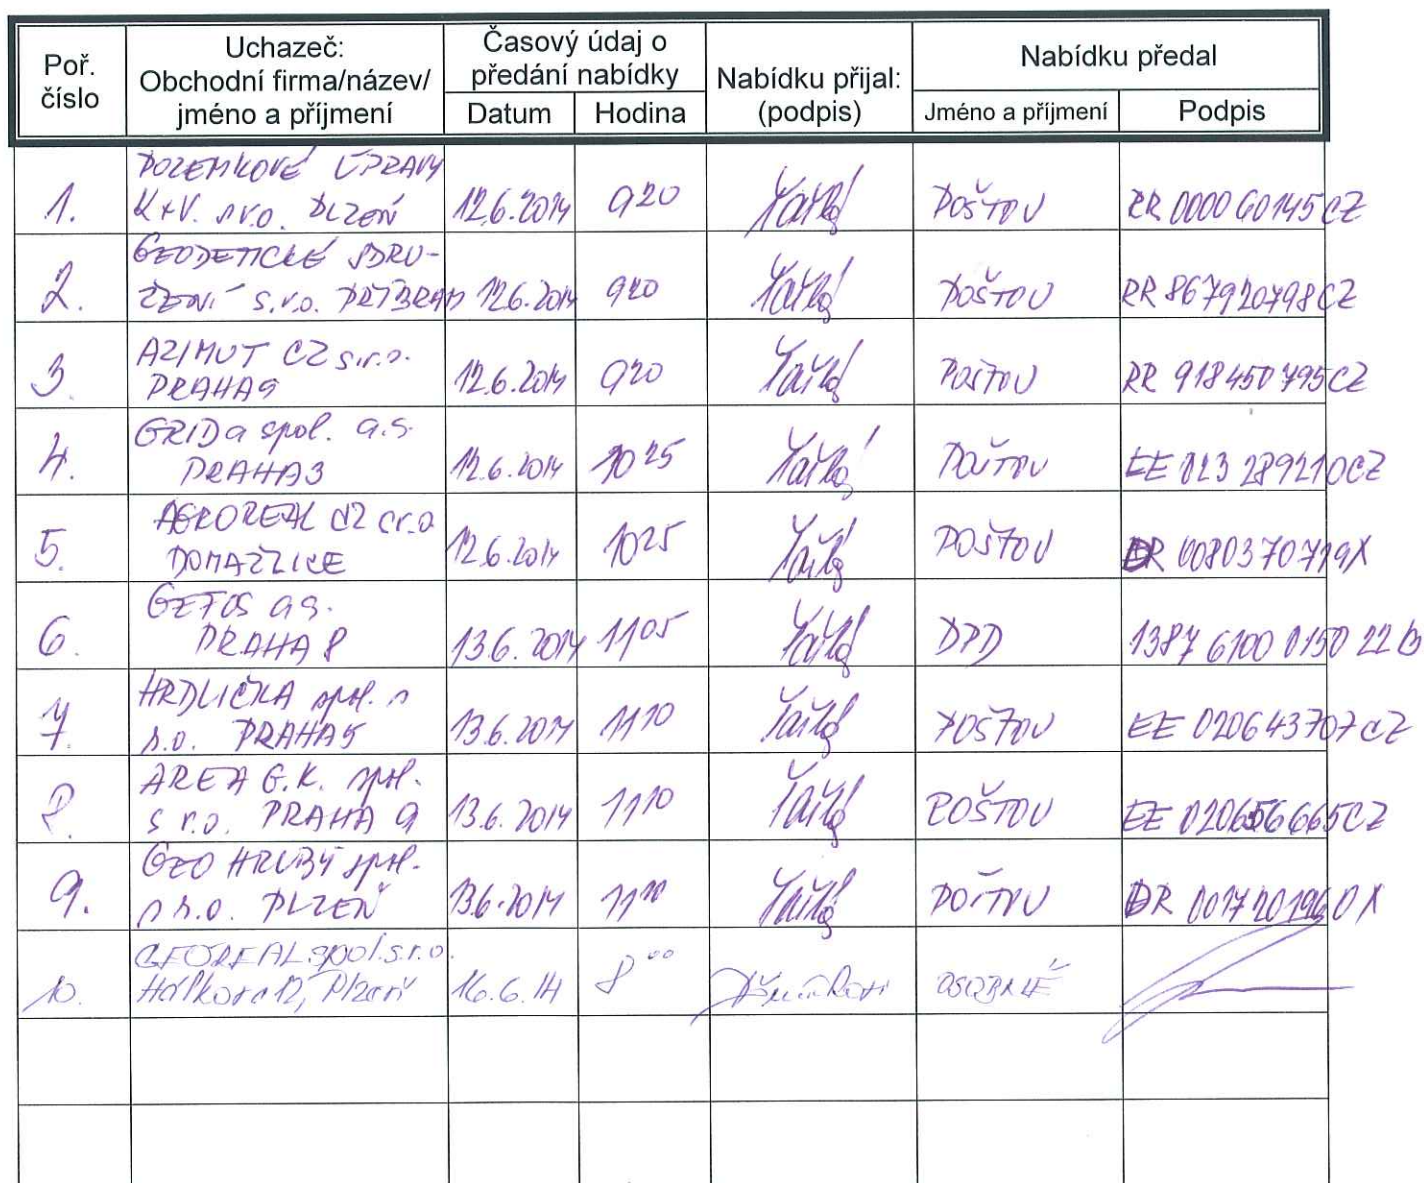 Poř. číslo
Uchazeč:
Obchodní firma/název/
jméno a příjmení
Časový údaj o
předání nabídky
Datum
Hodina
Nabídku přijal:
(podpis)
Nabídku předal
Jméno a příjmení
Podpis
1. POZEMKOVÉ ÚPRAVY
K+V. s.r.o. PLZEŇ 12.6.2014 9 20 POŠTOU RR 0000 60145 CZ
2. GEODETICKÉ SDRU-
ŽENÍ s.r.o. PŘÍBRAM 12.6.2014 9 20 POŠTOU RR 867920798 CZ
3. AZIMUT CZ s.r.o.
PRAHA 9 12.6.2014 9 20 POŠTOU RR 918450795 CZ
4. GRIDA spol. a.s.
PRAHA 3 12.6.2014 10 25 POŠTOU EE 023 289210 CZ
5. AGROREAL CZ s.r.o
DOMAŽLICE 12.6.2014 10 25 POŠTOU DR 0080370719X
6. GEFOS a.s.
PRAHA 8 13.6.2014 11 05 DPD 1387 6100 0150 22 B
7. HRDLIČKA spol. s
r.o. PRAHA 5 13.6.2014 11 10 POŠTOU EE 020643707 CZ
8. AREA G.K. spol.
s r.o. PRAHA 9 13.6.2014 11 10 POŠTOU EE 020656665 CZ
9. GEO HRUBÝ spol.
s r.o. PLZEŇ 13.6.2014 11 10 POŠTOU DR 0017201960X
10. GEOREAL spol. s.r.o.
Hálkova 12, Plzeň 16.6.14 8 00 OSOBNĚ